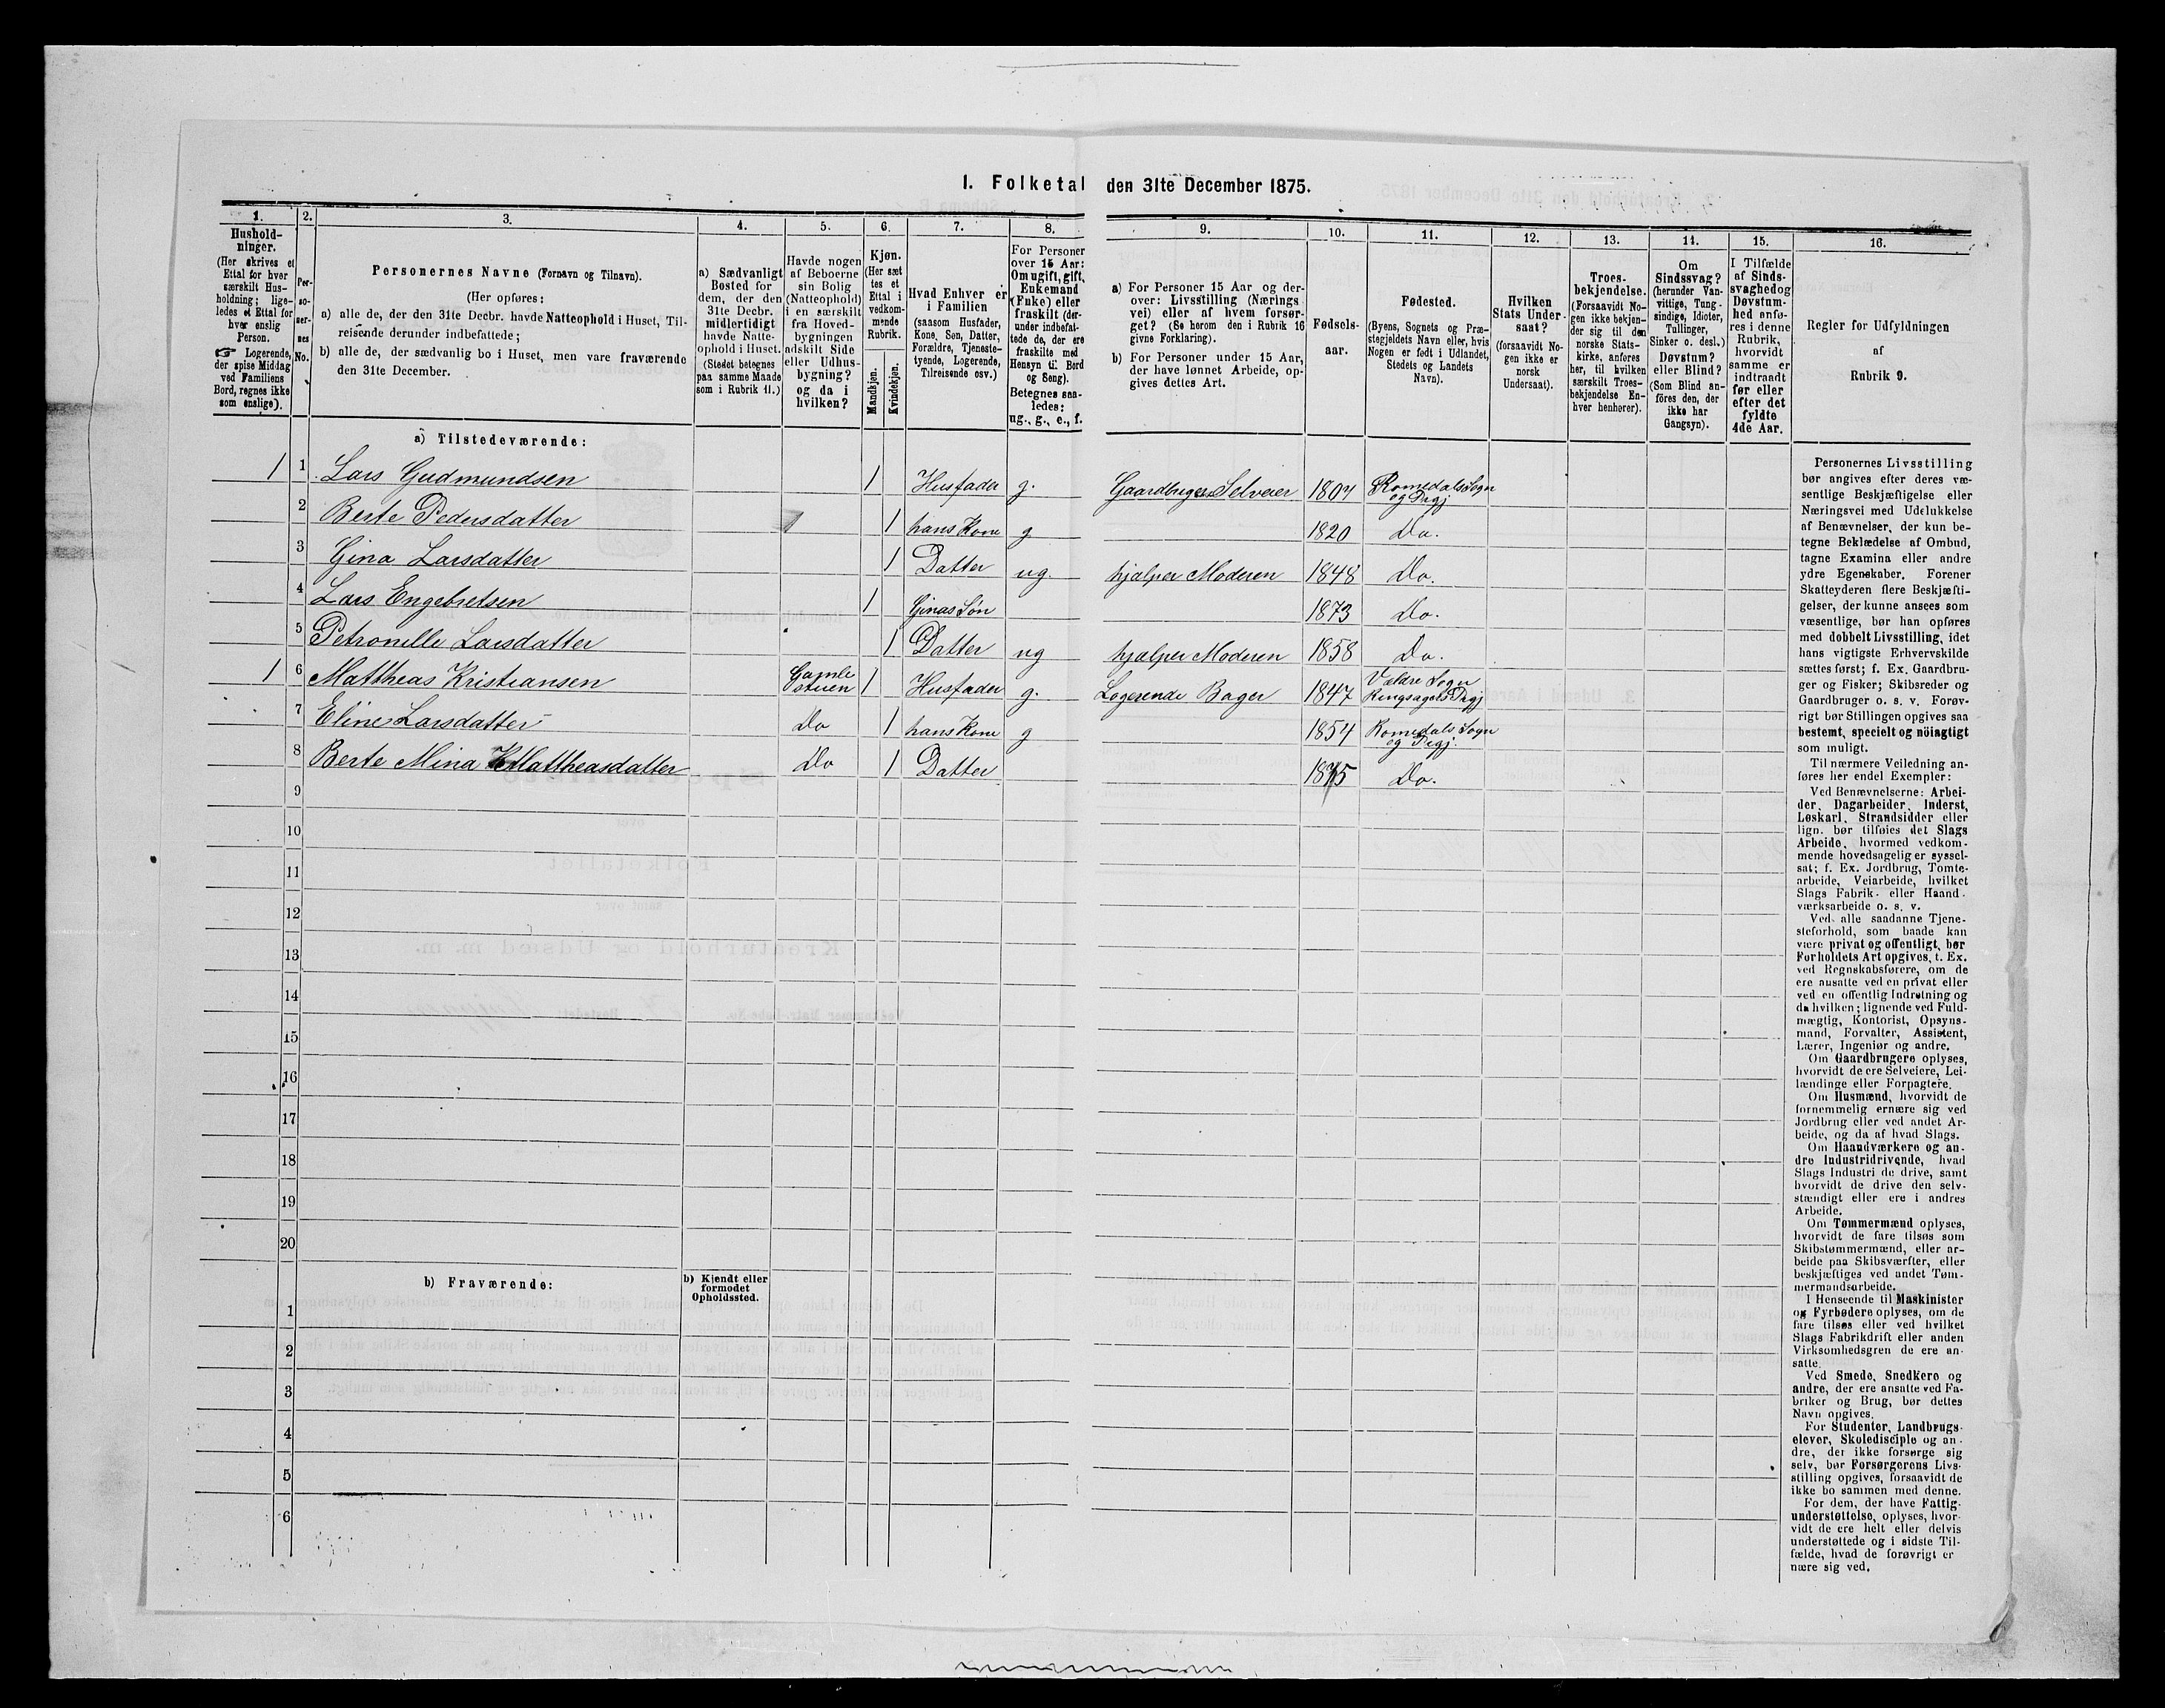 I. Folketal den 31te December 1875.
1. 2. 3. 4. 5. 6. 7. 8. 9. 10. 11. 12. 13. 14. 15. 16.
Hushold-
ninger.
(Her skrives et
Ettal for hver
særskilt Hus-
holdning; lige-
ledes et Ettal for
hver enslig
Person.
☞ Logerende,
der spise Middag
ved Familiens
Bord, regnes ikke
som enslige).
Per-
so-
ner-
nes
No.
Personernes Navne (Fornavn og Tilnavn).
(Her opføres:
a) alle de, der den 31te Decbr. havde Natteophold i Huset, Til-
reisende derunder indbefattede;
b) alle de, der sædvanlig bo i Huset, men vare fraværende
den 31te December.
a) Sædvanligt
Bosted for
dem, der den
31te Decbr.
midlertidigt
havde Natte-
ophold i Huset.
(Stedet betegnes
paa samme Maade
som i Rubrik 11.)
Havde nogen
af Beboerne
sin Bolig
(Natteophold)
i en særskilt
fra Hoved-
bygningen
adskilt Side
eller Udhus-
bygning?
og da i
hvilken?
Kjøn.
(Her sæt
tes et
Ettal i
vedkom-
mende
Rubrik.
Mandkjøn.
Kvindekjøn.
Hvad Enhver er
i Familien
(saasom Husfader,
Kone, Søn, Datter,
Forældre, Tjeneste-
tyende, Logerende,
Tilreisende osv.)
For Personer
over 15 Aar:
Om ugift, gift,
Enkemand
(Enke) eller
fraskilt (der-
under indbefat-
tede de, der ere
fraskilte med
Hensyn til Bord
og Seng).
Betegnes saa-
ledes:
ug., g., e., f.
a) For Personer 15 Aar og der-
over: Livsstilling (Nærings
vei) eller af hvem forsør-
get? (Se herom den i Rubrik 16
givne Forklaring).
b) For Personer under 15 Aar,
der have lønnet Arbeide, op-
gives dettes Art.
Fødsels-
aar.
Fødested.
(Byens, Sognets og Præ-
stegjeldets Navn eller, hvis
Nogen er født i Udlandet,
Stedets og Landets
Navn).
Hvilken
Stats Under-
saat?
(forsaavidt No-
gen ikke er
norsk
Undersaat).
Troes-
bekjendelse.
(Forsaavidt No-
gen ikke bekjen-
der sig til den
norske Stats-
kirke, anføres
her, til hvilken
særskilt Troes-
bekjendelse En-
hver henhører).
Om
Sindssvag?
(herunder Van-
vittige, Tung-
sindige, Idioter,
Tullinger,
Sinker o. desl.)
Døvstum?
eller Blind?
(Som Blind an-
föres den, der
ikke har
Gangsyn).
I Tilfælde
af Sinds-
svaghed og
Døvstum-
hed anfø-
res i denne
Rubrik,
hvorvidt
samme er
indtraadt
før eller
efter det
fyldte
4de Aar.
Regler før Udfyldningen
af
Rubrik 9.
a) Tilstedeværende:
1 1 Lars Gudmundsen 1 Husfader g. Gaardbruger Selveier 1807 Romedals Sogn og Prgj
2 Berte Pedersdatter 1 hans Kone g 1820 Do.
3 Gina Larsdatter 1 Datter ug. hjælper Moderen 1848 Do.
4 Lars Engebretsen 1 Ginas Søn 1873 Do.
5 Petronelle Larsdatter 1 Datter ug hjælper Moderen 1858 Do.
1 6 Mattheas Kristiansen Gamle stuen 1 Husfader g. Logerende Bager 1847 Vældre Sogn Ringsagers Prgj
7 Eline Larsdatter Do 1 hans Kone g 1854 Romedals Sogn og Prgj.
8 Berte Mina Mattheasdatter Do 1 Datter 1875 Do.
9
10
11
12
13
14
15
16
17
18
19
20
b) Fraværende:
b) Kjendt eller
formodet
Opholdssted.
1
2
3
4
5
6
Personernes Livsstilling
bør angives efter deres væ-
sentlige Beskjæftigelse eller
Næringsvei med Udelukkelse
af Benævnelser, der kun be-
tegne Beklædelse af Ombud,
tagne Examina eller andre
ydre Egenskaber. Forener
Skatteyderen flere Beskjæfti-
gelser, der kunne ansees som
væsentlige, bør han opføres
med dobbelt Livsstilling, idet
hans vigtigste Erhvervskilde
sættes først; f. Ex. Gaardbru-
ger og Fisker; Skibsreder og
Gaardbruger o. s. v. Forøv-
rigt bør Stillingen opgives saa
bestemt, specielt og nöiagtigt
som muligt.
Til nærmere Veiledning an-
føres her endel Exempler:
Ved Benævnelserne: Arbei-
der, Dagarbeider, Inderst,
Løskarl, Strandsidder eller
lign. bør tilføies det Slags
Arbeide, hvormed vedkom-
mende hovedsagelig er syssel-
sat; f. Ex. Jordbrug, Tomte-
arbeide, Veiarbeide, hvilket
Slags Fabrik- eller Haand-
værksarbeide o. s. v.
Ved alle saadanne Tjene-
steforhold, som baade kan
være privat og offentligt, bør
Forholdets Art opgives, t. Ex.
ved Regnskabsførere, om de
ere ansatte ved en privat eller
ved en offentlig Indretning og
da hvilken; lignende ved Fuld-
mægtig, Kontorist, Opsyns-
mand, Forvalter, Assistent,
Lærer, Ingeniør og andre.
Om Gaardbrugere oplyses,
hvorvidt de ere Selveiere, Lei-
lændinge eller Forpagtere.
Om Husmænd, hvorvidt de
fornemmelig ernære sig ved
Jordbrug eller ved andet Ar-
beide, og da af hvad Slags.
Om Haandværkere og an-
dre Industridrivende, hvad
Slags Industri de drive, samt
hvorvidt de drive den selv-
stændigt eller ere i andres
Arbeide.
Om Tømmermænd oplyses,
hvorvidt de fare tilsøs som
Skibstømmermænd, eller ar-
beide paa Skibsværfter, eller
beskjæftiges ved andet Tøm-
mermandsarbeide.
I Henseende til Maskinister
og Fyrbødere oplyses, om de
fare tilsøs eller ved hvilket
Slags Fabrikdrift eller anden
Virksomhedsgren de ere an-
satte.
Ved Smede, Snedkere og
andre, der ere ansatte ved Fa-
briker og Brug, bør dettes
Navn opgives.
For Studenter, Landbrugs-
elever, Skoledisciple og an-
dre, der ikke forsørge sig
selv, bør Forsørgerens Livs-
stilling opgives, forsaavidt de
ikke bo sammen med denne.
For dem, der have Fattig-
understøttelse, oplyses, hvor-
vidt de ere helt eller delvis
understøttede og i sidste Til-
fælde, hvad de forøvrigt er
nære sig ved.